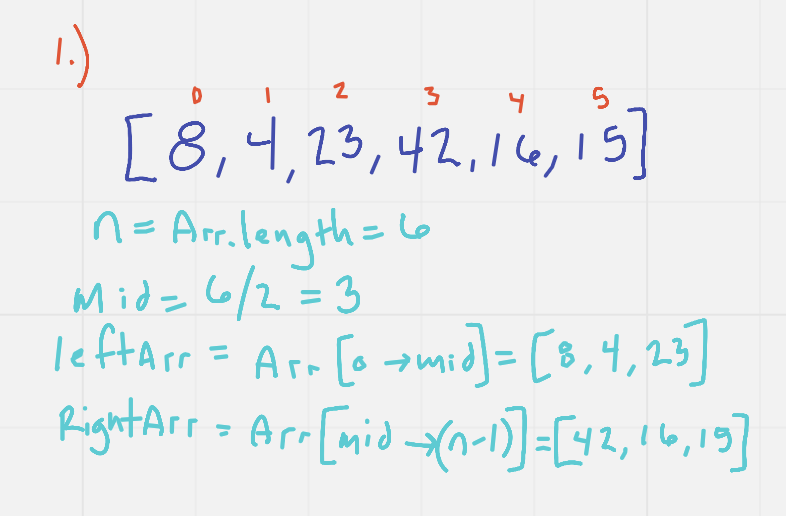 1.)
0 1 2 3 4 5
[8, 4, 23, 42, 16, 15]
n = Arr.length = 6
Mid = 6/2 = 3
leftArr = Arr[0 → mid] = [8, 4, 23]
RightArr = Arr[mid → (n-1)] = [42, 16, 15]